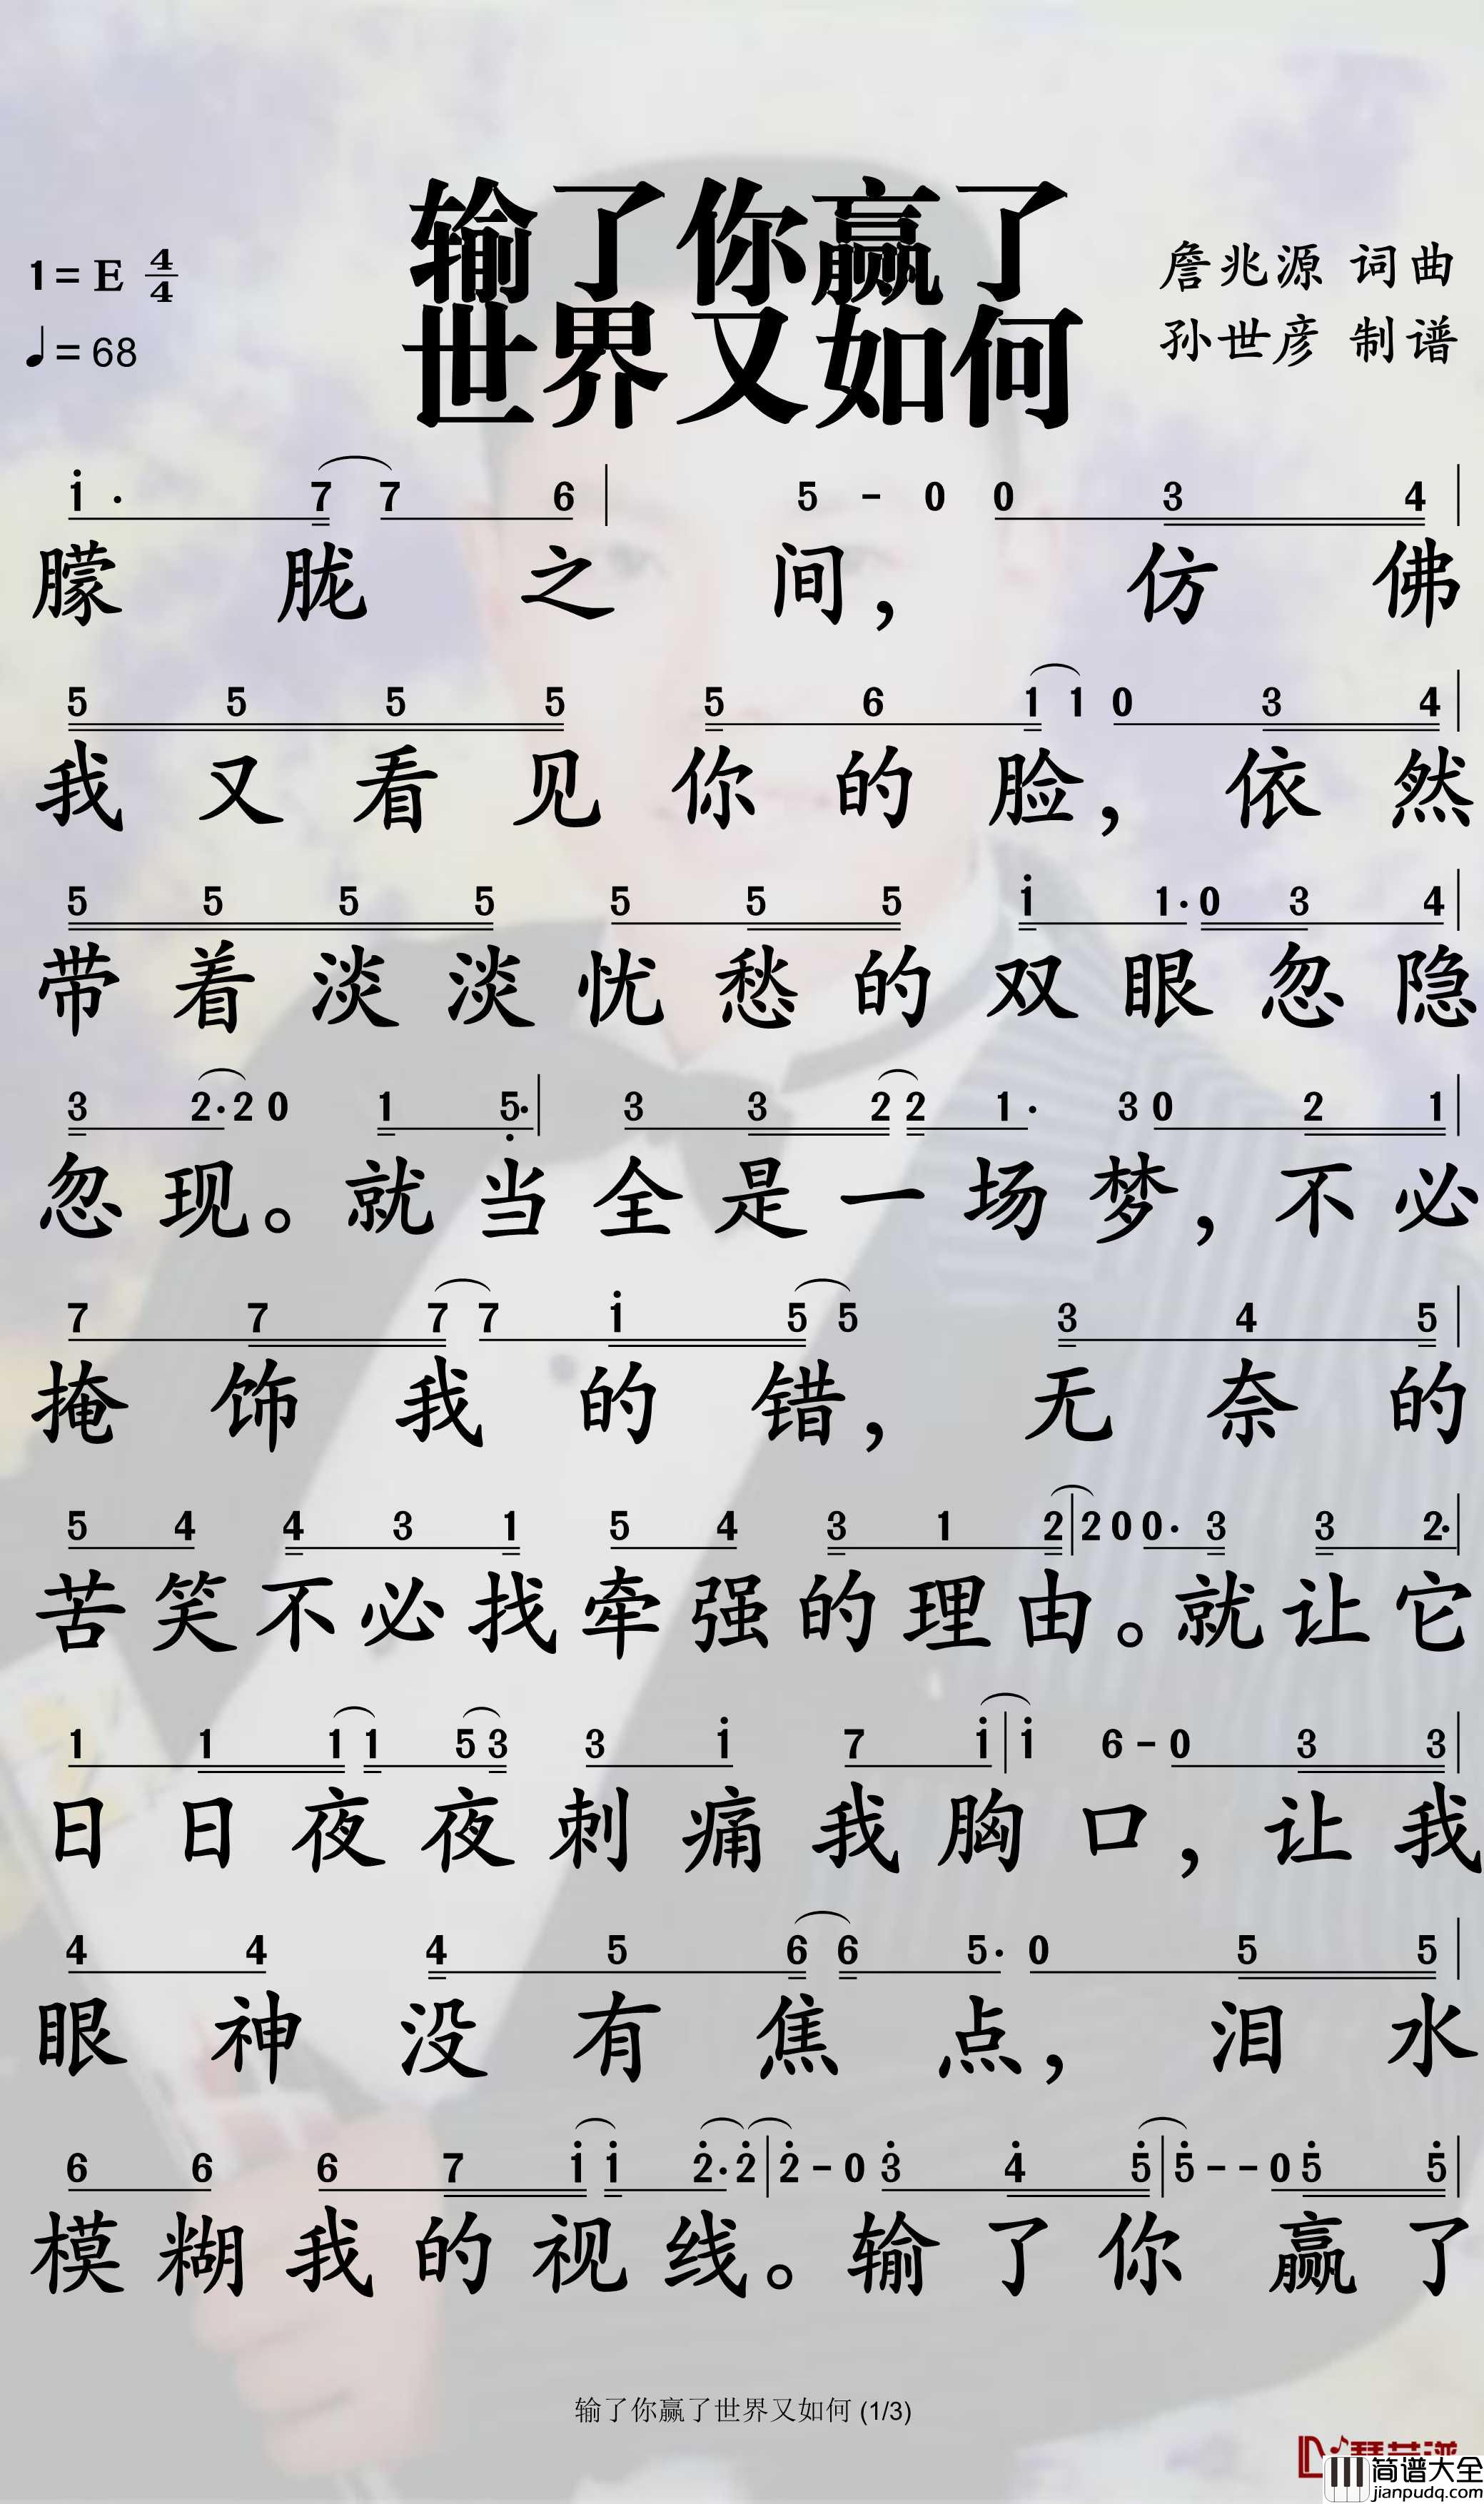 输了你赢了
世界又如何
1=E 4/4
♩=68
詹兆源 词曲
孙世彦 制谱
i · 7 7 6 | 5 - 0 0 3 4 |
朦胧之间，仿佛
5 5 5 5 5 6 1 1 0 3 4 |
我又看见你的脸，依然
5 5 5 5 5 5 5 i 1· 0 3 4 |
带着淡淡忧愁的双眼忽隐
3 2· 2 0 1 5̣· | 3 3 2 2 1· 3 0 2 1 |
忽现。就当全是一场梦，不必
7 7 7 7 i 5 5 3 4 5 |
掩饰我的错，无奈的
5 4 4 3 1 5 4 3 1 2 | 2 0 0· 3 3 2· |
苦笑不必找牵强的理由。就让它
1 1 1 1 5 3 3 i 7 i | i 6 - 0 3 3 |
日日夜夜刺痛我胸口，让我
4 4 4 5 6 6 5· 0 5 5 |
眼神没有焦点，泪水
6 6 6 7 i i 2̇· 2̇ | 2̇ - 0 3̇ 4̇ 5̇ | 5̇ - - 0 5̇ 5̇ |
模糊我的视线。输了你赢了
输了你赢了世界又如何 (1/3)
简谱大全
jianpudq.com